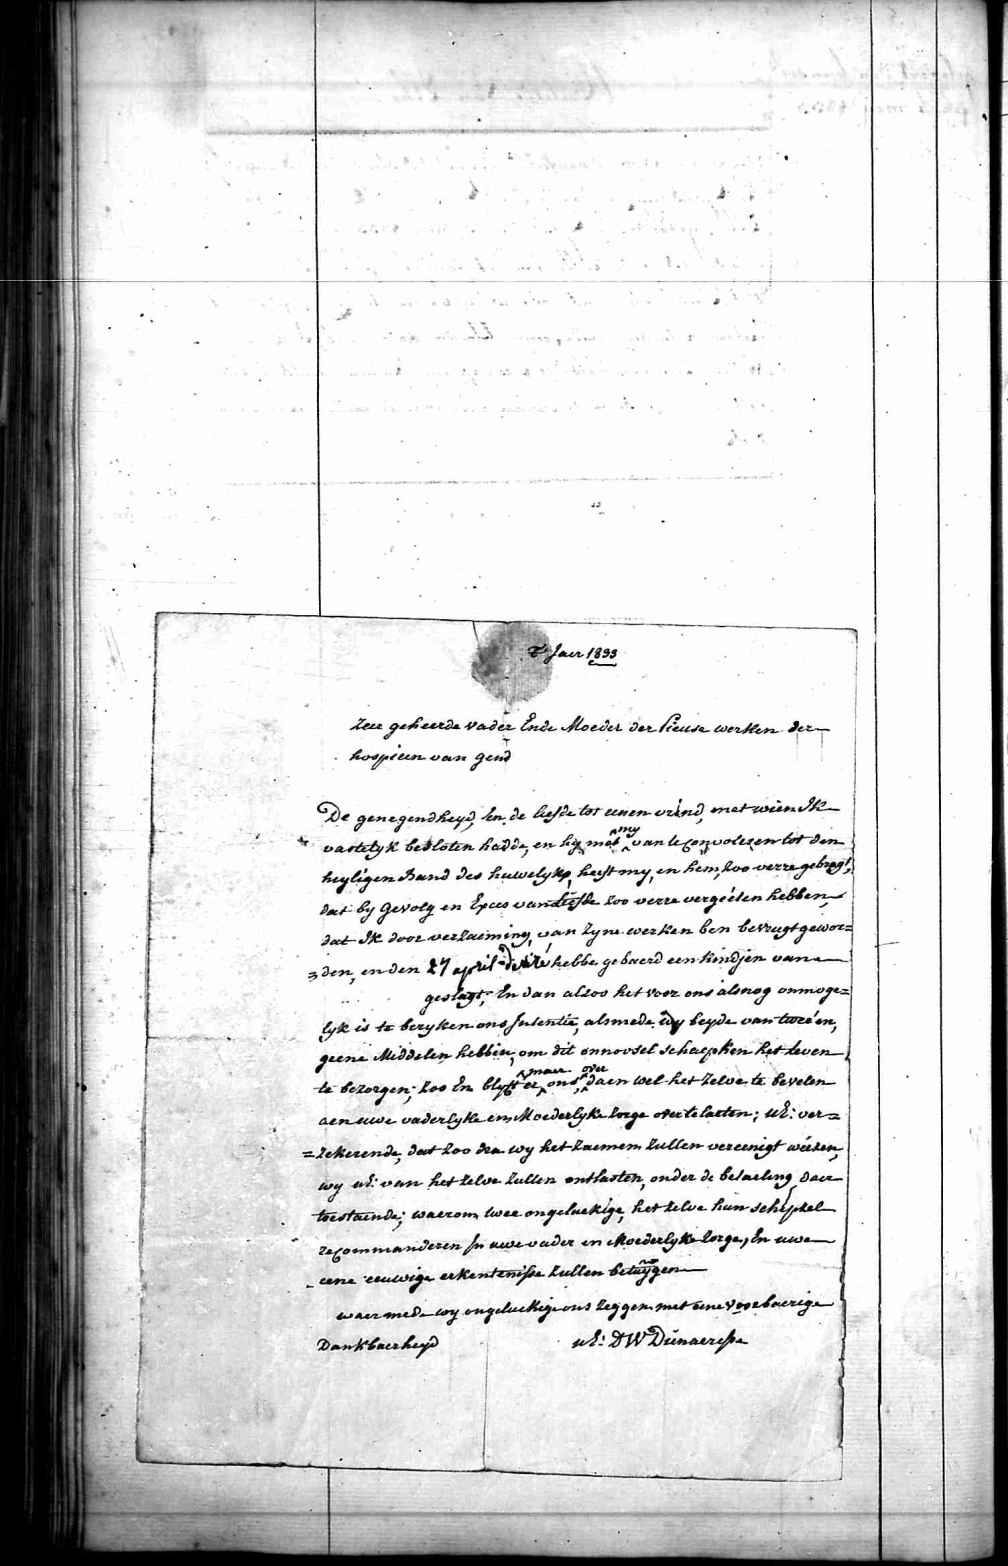 T Jaer 1833
Zeer geheerde vader Ende Moeder der Pieuse werken der
hospicen van gend
De genegendheyd, En de liefde tot eenen vrind, met wien Ik
vastelyk besloten hadde, en hy met my van te convoleren tot den
heyligen Band des huwelyks, heeft my, en hem, zoo verre gebragt,
dat by Gevolg en Exces van Liefde zoo verre vergeéten hebben,
dat Ik door verzaiming, van zyne werken ben bevrugt gewor=
=den, en den 27 april hebbe gebaerd een kindjen van
geslagt; En dan alzoo het voor ons alsnog onmoge=
lyk is te beryken ons Intentie, alsmede wy beyde van tweéen,
geene Middelen hebben, om dit onnoosel schaepken het Leven
te bezorgen; zoo En blyft er maer ons over, daen wel het zelve te bevelen
aen uwe vaderlyke en Moederlyke zorge over te laeten; uE: ver=
=zekerende, dat zoo dra wy het zaemem zullen vereenigt wéezen,
wy uE: van het zelve zullen ontlasten, onder de betaeling daer
toestaende; waerom twee ongeluckige, het zelve hun schepzel
recommanderen In uwe vader en Moederlyke zorge, En uwe
eene eeuwige erkentenisse zullen betuygen
waer mede wy ongeluckige ons zeggen met eene voorbaerige
Dankbaerheyd uE: DW Dienaeresse